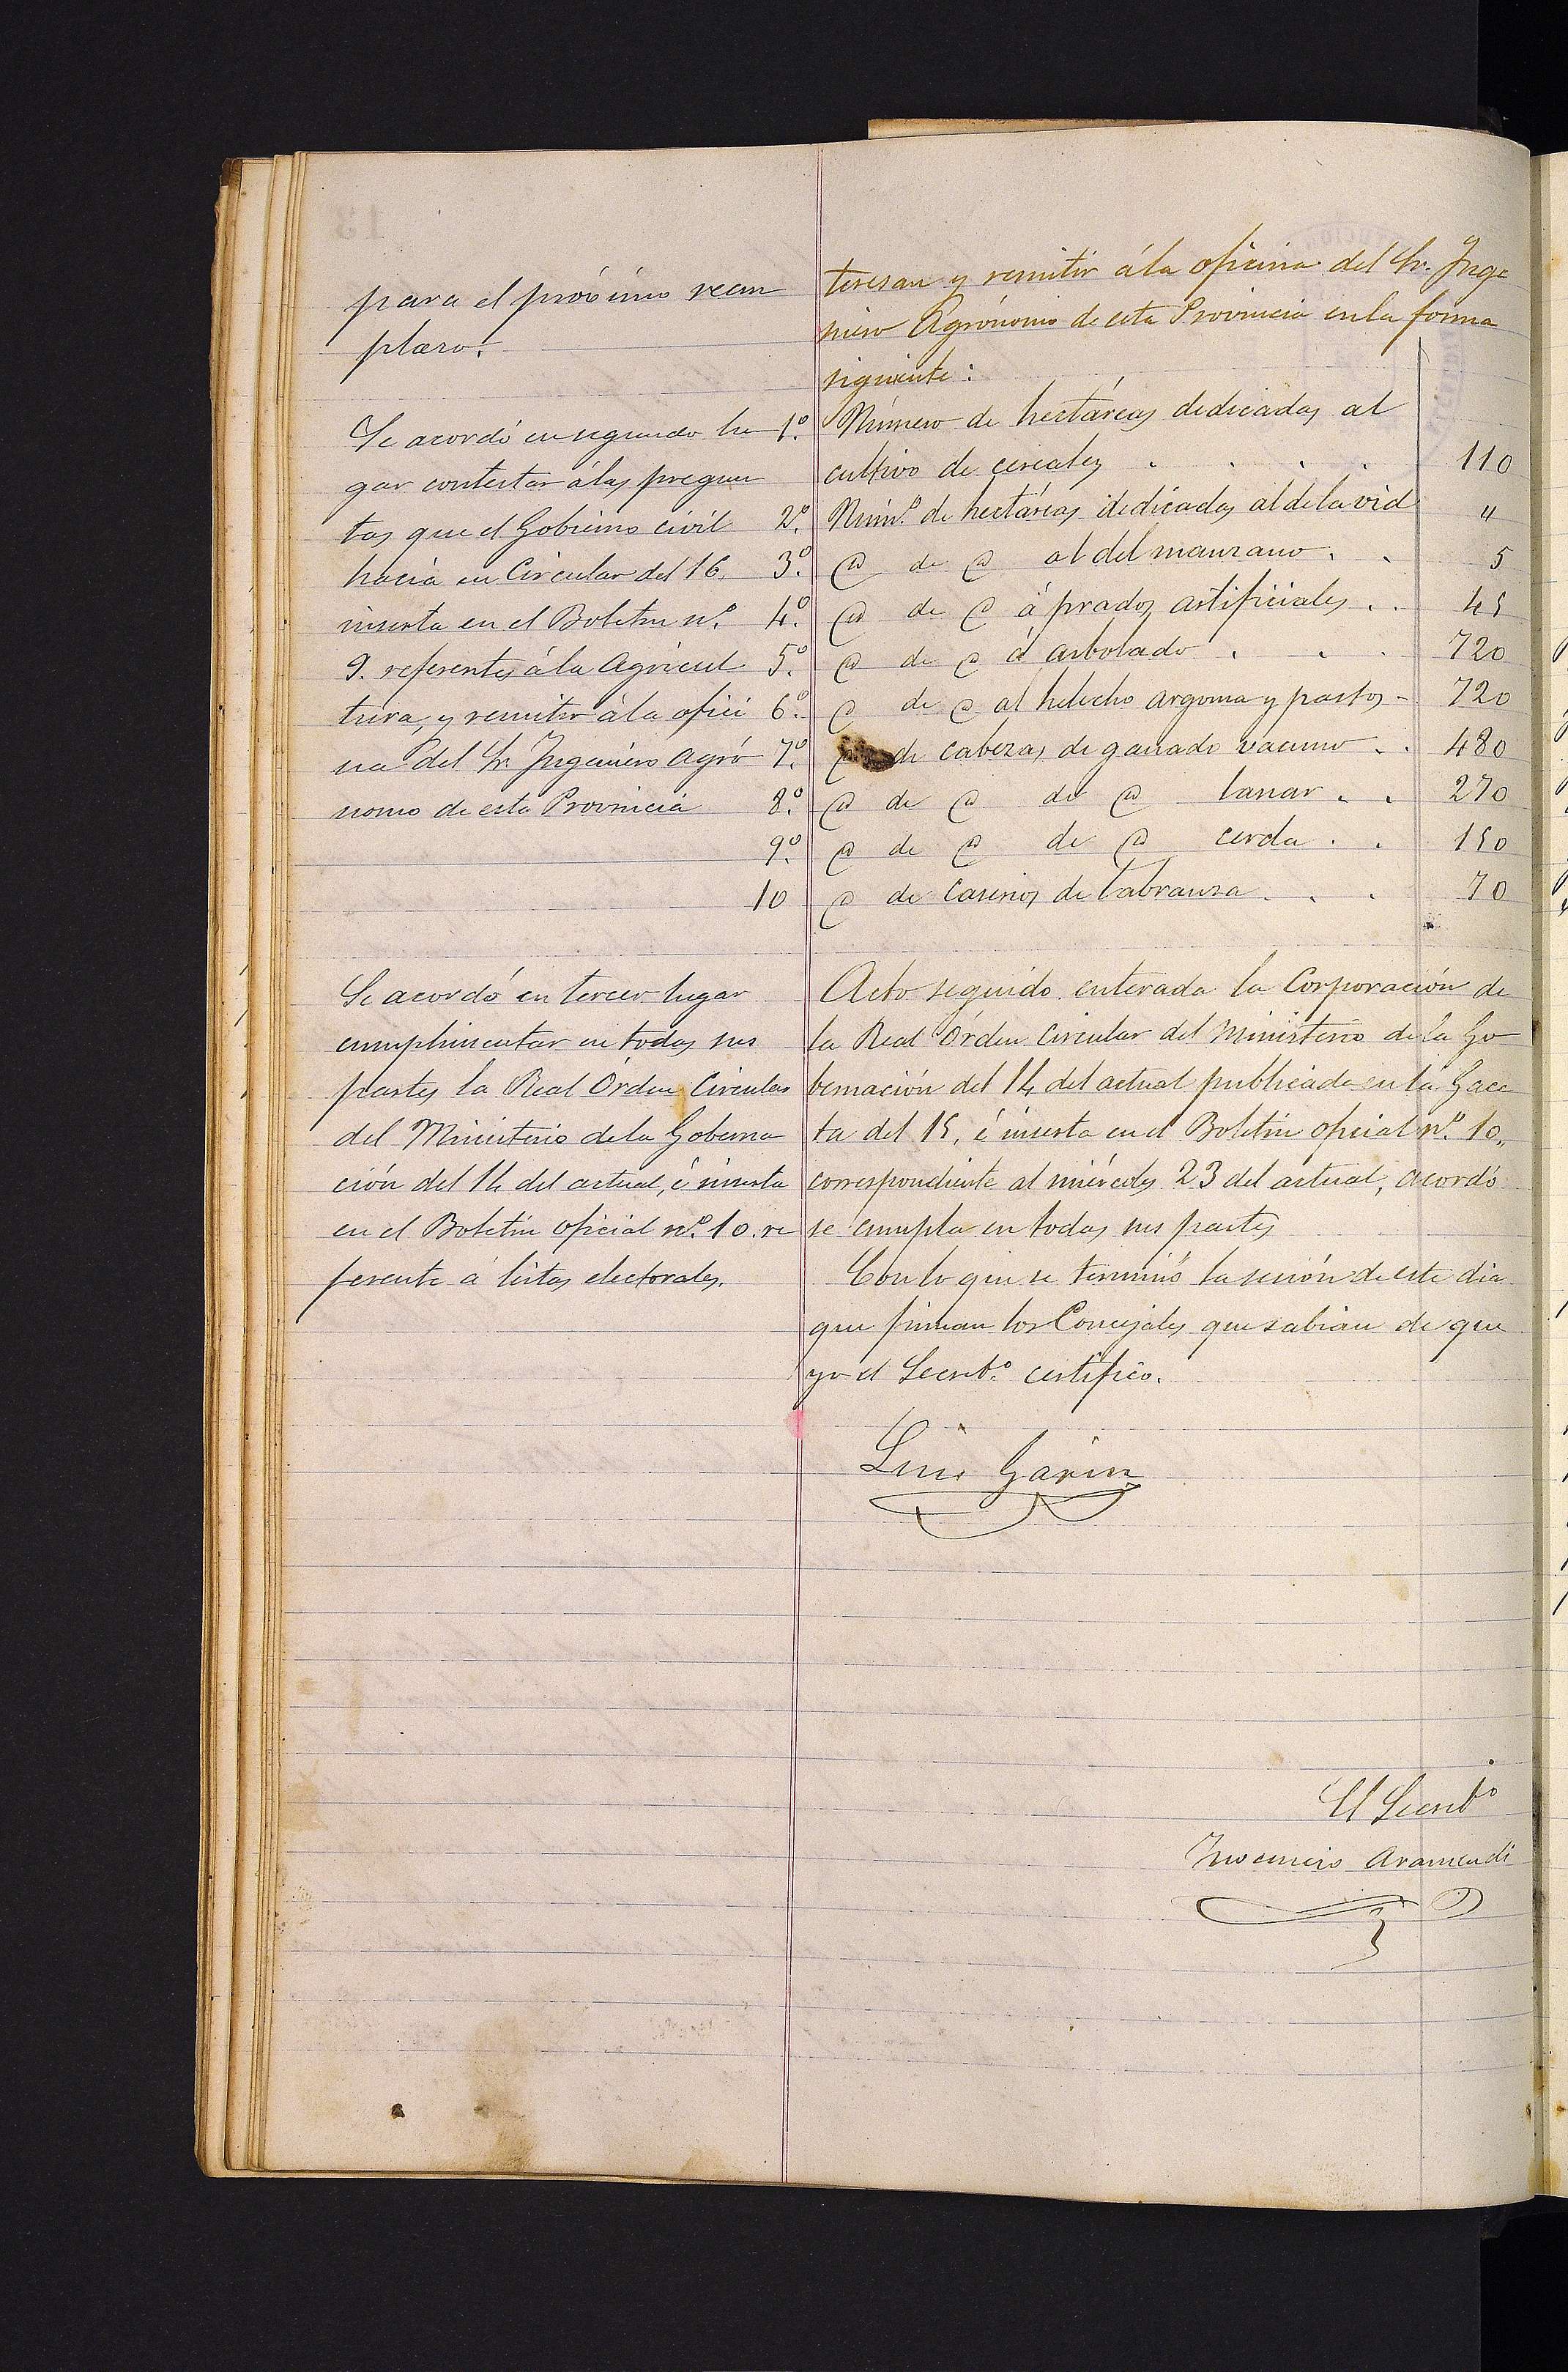 para el próximo reem
plazo.
Se acordó en segundo lu
gar contestar á las pregun
tas que el Gobierno civil
hacía en Circular del 16.
inserta en el Boletin n.º
9. referentes á la Agricul
tura, y remitir á la ofici
na del Sr. Ingeniero Agró
nomo de esta Provincia
Se acordó en tercer lugar
cumplimentar en todas sus
partes la Real Orden Circular
del Ministerio de la Goberna
ción del 14 del actual, é inserta
en el Boletin oficial n.º 10. re
ferente á listas electorales.
teresan y remitir á la oficina del Sr. Inge
niero Agrónomo de esta Provincia en la forma
siguiente:
1.º Número de hectáreas dedicadas al
cultivo de cereales . . . . 110
2.º Núm.º de hectáreas dedicadas al de la vid "
3.º @ de @ al del manzano . . 5
4.º @ de @ á prados artificiales . . 45
5.º @ de @ á arbolado . . . 720
6.º @ de @ al helecho argoma y pastos - 720
7.º de cabezas de ganado vacuno . . 480
8.º @ de @ de @ lanar . . 270
9.º @ de @ de @ cerda . . 150
10 @ de Caserios de labranza . . . 70
Acto seguido enterada la Corporación de
la Real Órden Circular del Ministerio de la Go
bernación del 14 del actual publicada en la Gace
ta del 15, é inserta en el Boletin oficial n.º 10,
correspondiente al miércoles 23 del actual, acordó
se cumpla en todas sus partes
Con lo que se terminó la sesión de este dia
que firman los Concejales que sabian de que
yo el Secret.º certifico.
Luis Garin
El Secret.º
Inocencio Aramendi